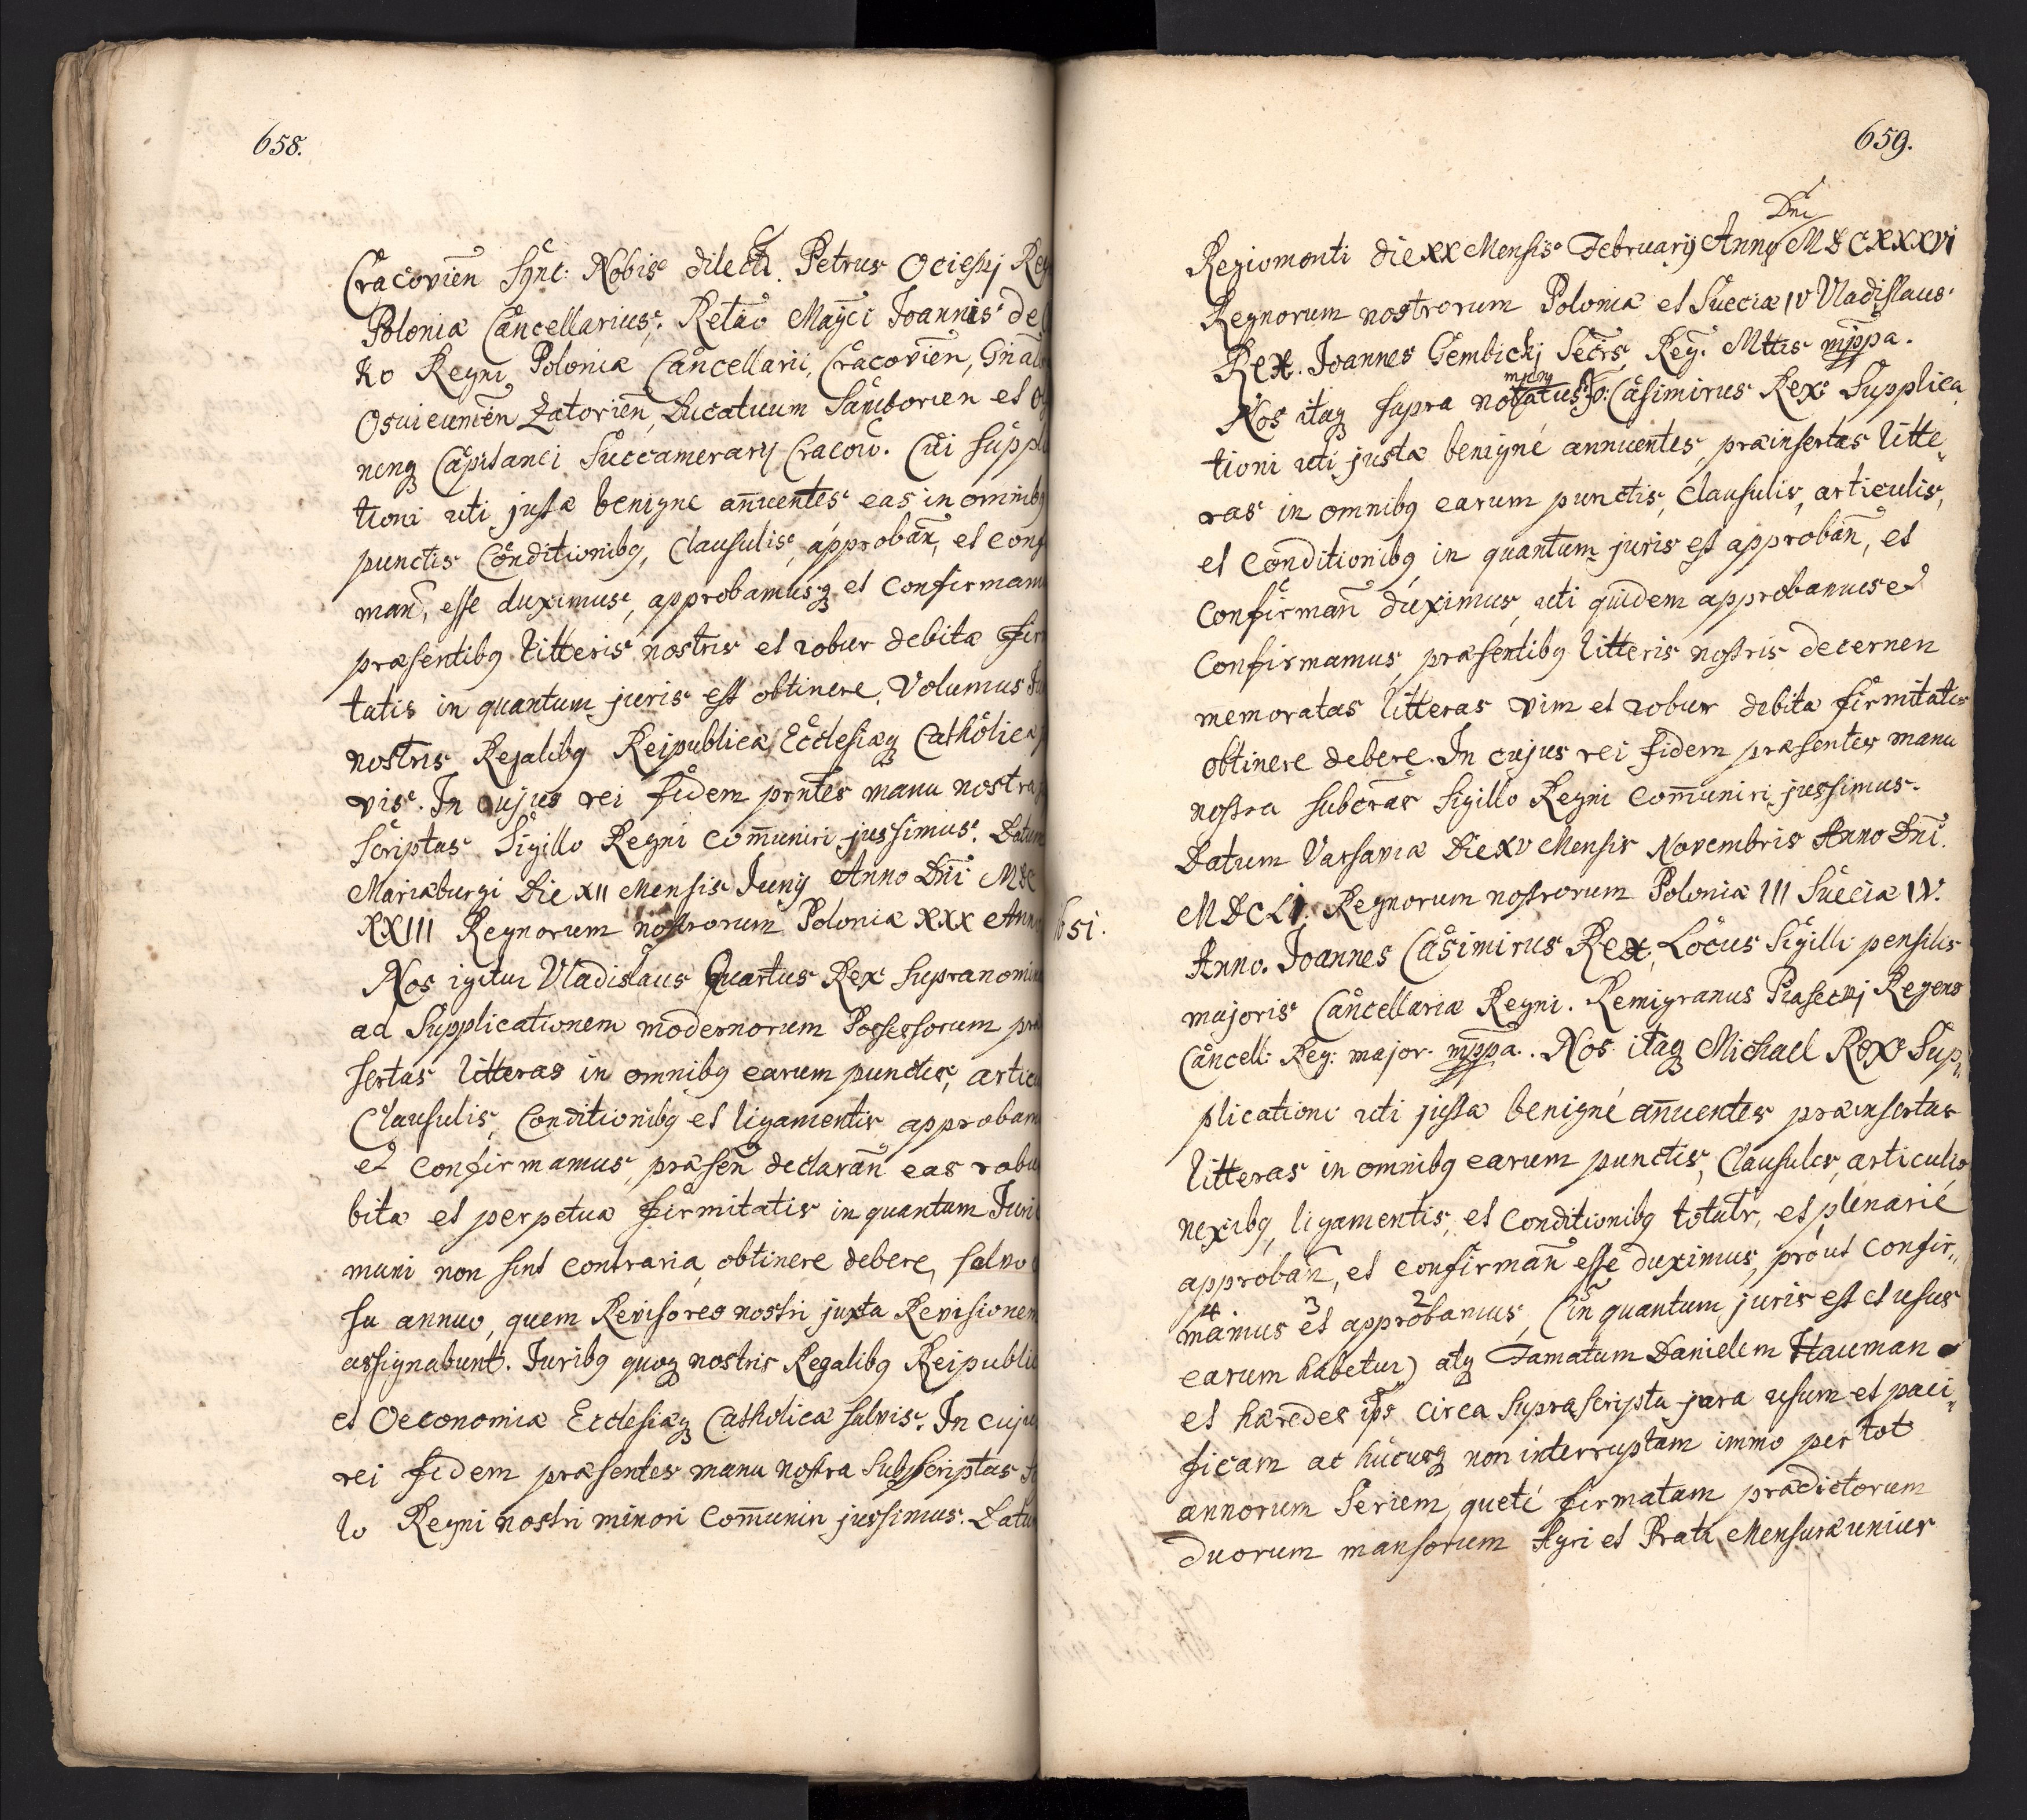 658.
Cracovień Sync: Nobis dilecti. Petrus Ocieski Reg
Poloniæ Cancellarius. Relão Magci Joannis de
ko Regni Poloniæ Cancellarii, Cracovień, Gnãl
Osuieumeń Zatorień, Ducatuum Samborien et
nenq Capitanei Succamerarij Cracov. Cui Suppl
tioni uti justæ benigne añuentes eas in omnibq
punctis Conditionibq, Clausulis, approbañ, et conf
mañ, esse duximus, approbamusq et confirmam
præsentibq litteris nostris et robur debitæ fir
tatis in quantum juris est obtinere. Volumus Ju
nostris Regalibq Reipublicæ, Ecclesiæq Catholicæ
vis. In cujus rei fidem pntes manu nostra
Scriptas Sigillo Regni com̃uniri jussimus. Datum
Mariæburgi Die XII Mensis Junij Anno Dñi MDC
XXIII Regnorum nostrorum Poloniæ XXX Anno
Nos igitur Vladislaus Quartus Rex supranomi
ad Supplicationem modernorum Possessorum præ
sertas litteras in omnibq earum punctis, artic
Clausulis, Conditionibq et ligamentis approbam
et confirmamus, præseñ declarañ eas robu
bitæ et perpetuæ firmitatis in quantum Juri
muni non sint contraria, obtinere debere, salvo
su annuo, quem Revisores nostri juxta Revisionem
assignabunt. Juribq quoq nostris Regalibq Reipublic
et Oeconomiæ Ecclesiæq Catholicæ salvis. In cuju
rei fidem præsentes manu nostra Subscriptas
lo Regni nostri minori com̃uniri jussimus. Datu
659.
Dñi
Regiomonti die XX Mensis Februarij Anno MDCXXXVI
Regnorum nostrorum Poloniæ et Sueciæ IV Vladislaus
Rex. Joannes Gembickj Secrs Reg. Mttis mppa.
Nos itaq supra notatus Jo: Casimirus Rex Supplica
tioni uti justæ benigné annuentes, præinsertas litte„
ras in omnibq earum punctis, Clausulis, articulis,
et conditionibq in quantum juris est approbañ, et
confirmañ duximus, uti quidem approbamus et
confirmamus, præsentibq litteris nostris decernen
memoratas litteras vim et robur debitæ firmitatis
obtinere debere. In cujus rei fidem præsentes manu
nostra subcras Sigillo Regni com̃uniri jussimus.
Datum Varsaviæ Die XV Mensis Novembris Anno Dñi.
1651. MDCLI. Regnorum nostrorum Poloniæ III Sueciæ IV.
Anno. Joannes Casimirus Rex, Locus Sigilli pensilis
majoris Cancellariæ Regni. Remigranus Piaseckj Regens
Cancell: Reg: major. mppa. Nos itaq Michael Rex Sup„
plicationi uti justæ benigné añuentes præinsertas
litteras in omnibq earum punctis, Clausulis, articulis
nexibq, ligamentis, et conditionibq totalr, et plenarié
approbañ, et confirmañ esse duximus, prout confir„
4. 3 2
mamus et approbamus, (in quantum juris est et usus
earum habetur) atq Famatum Danielem Hauman
et hæredes ips circa suprascripta jura usum et paci„
ficam ac hucusq non interruptam immo per tot
annorum Seriem, queté firmatam prædictorum
duorum mansorum Agri et Prati Mensuræ unius